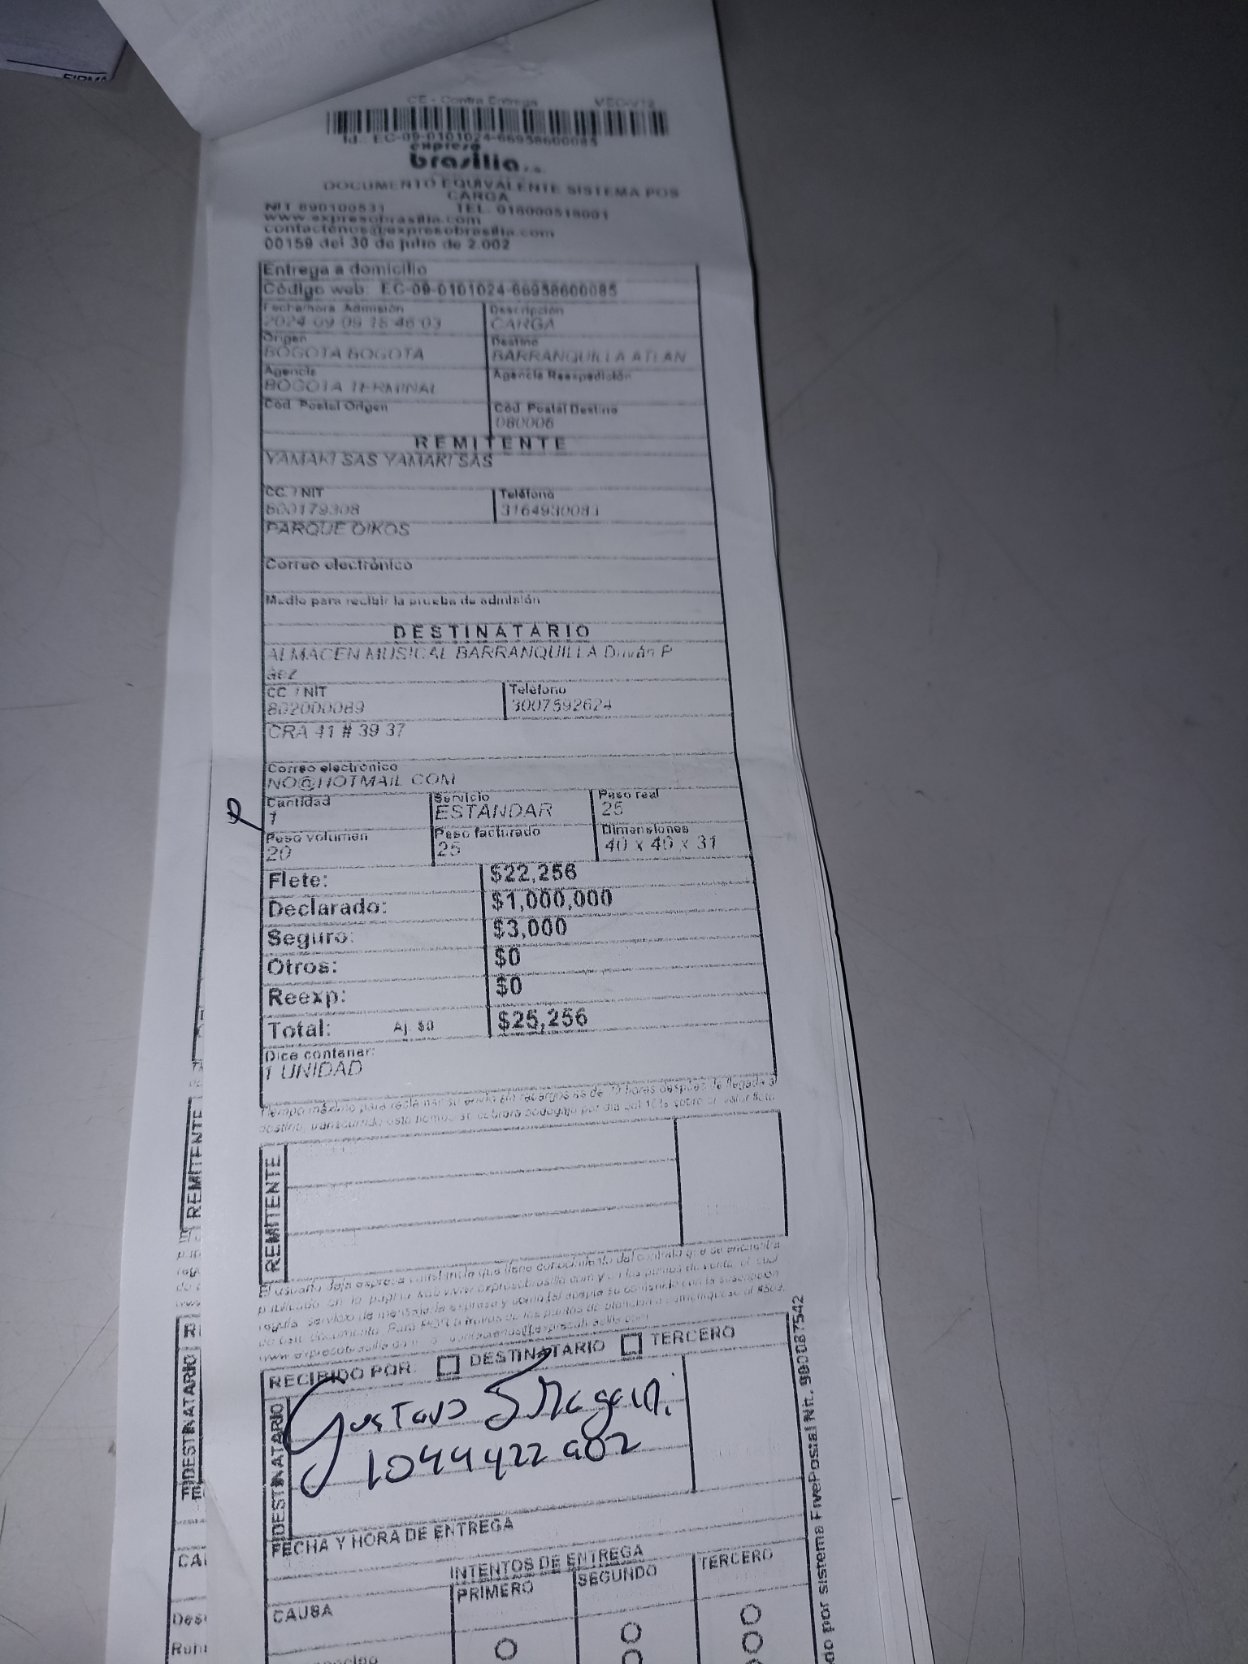 FIRMA
CE - Contra Entrega
Id.: EC-09-0101024-66958600085
expreso
brasilia s.a.
DOCUMENTO EQUIVALENTE SISTEMA POS
CARGA
NIT 890100531 TEL. 018000518001
www.expresobrasilia.com
contactenos@expresobrasilia.com
00159 del 30 de julio de 2.002
Entrega a domicilio
Código web: EC-09-0101024-66958600085
Fecha/hora Admisión Descripción
2024-09-09 15:46:03 CARGA
Origen Destino
BOGOTA BOGOTA BARRANQUILLA ATLAN
Agencia Agencia Reexpedición
BOGOTA TERMINAL
Cód. Postal Origen Cód. Postal Destino
080006
REMITENTE
YAMAKI SAS YAMAKI SAS
CC / NIT Teléfono
800179308 3164930083
PARQUE OIKOS
Correo electrónico
Medio para recibir la prueba de admisión
DESTINATARIO
ALMACEN MUSICAL BARRANQUILLA Duván P
áez
CC / NIT Teléfono
802000089 3007592624
CRA 41 # 39 37
Correo electrónico
NO@HOTMAIL.COM
Cantidad Servicio Peso real
1 ESTANDAR 25
Peso volumen Peso facturado Dimensiones
20 25 40 x 40 x 31
Flete: $22,256
Declarado: $1,000,000
Seguro: $3,000
Otros: $0
Reexp: $0
Total: Aj. $0 $25,256
Dice contener:
1 UNIDAD
Tiempo máximo para reclamar su envío sin recargos es de 72 horas después de llegada a
destino, transcurrido este tiempo se cobrará bodegaje por día del
REMITENTE
El usuario deja expresa constancia que tiene conocimiento del contrato que se encuentra
publicado en la página web www.expresobrasilia.com y en los puntos de venta, el cual
regula
RECIBIDO POR: DESTINATARIO TERCERO
DESTINATARIO
Gustavo J Magan.
1044422902
FECHA Y HORA DE ENTREGA
INTENTOS DE ENTREGA
CAUSA PRIMERO SEGUNDO TERCERO
do por sistema FivePostal Nit.. 900087542
REMITENTE
DESTINATARIO